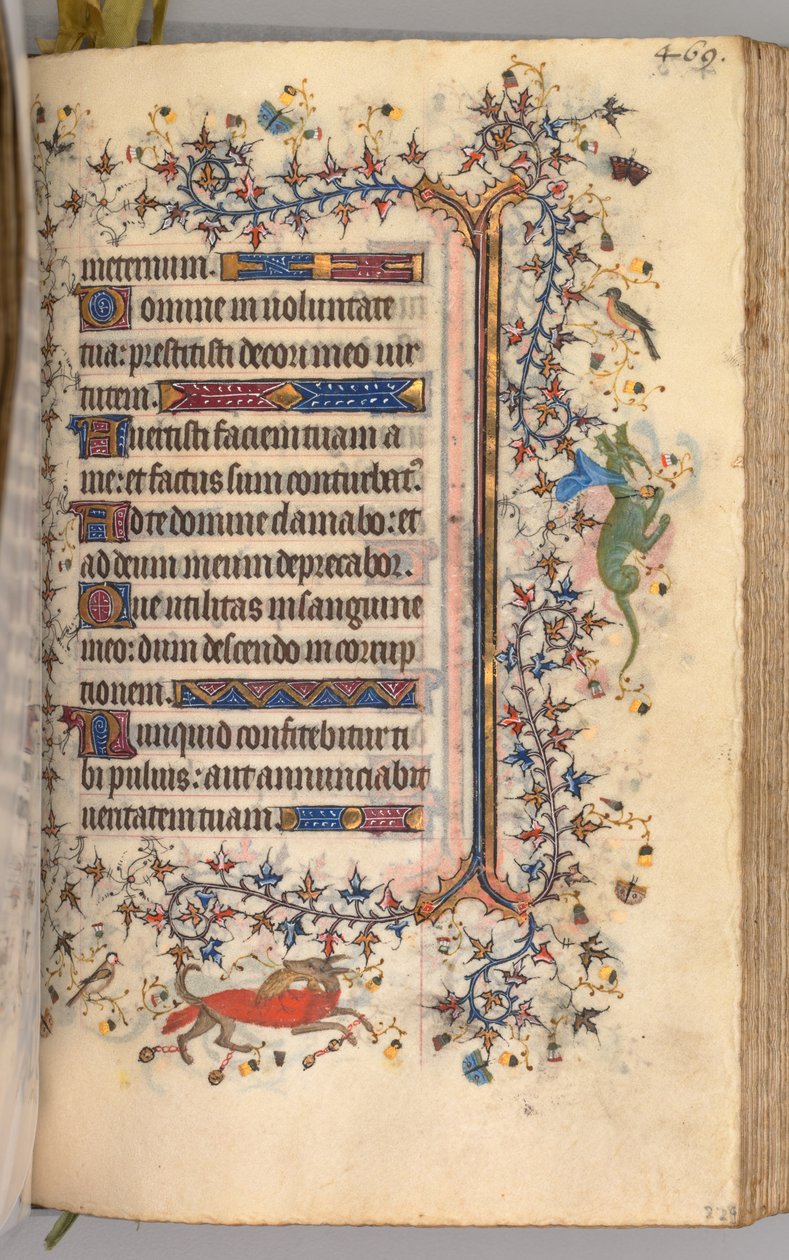 469.
meternum.
Domine in uoluntate
tua: prestitisti decori meo uir
tutem.
Auertisti faciem tuam a
me: et factus sum conturbat⁹.
Ad te domine clamabo: et
ad deum meum deprecabor.
Que utilitas in sanguine
meo: dum descendo in corrup
tionem.
Nunquid confitebitur ti
bi puluis: aut annunciabit
ueritatem tuam.
229